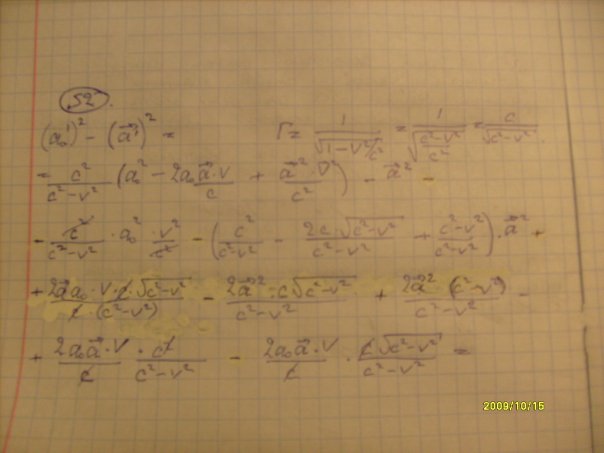 52.
(a₀')² - (a⃗')² =
Γ = 1/√(1-V²/c²) = 1/√((c²-v²)/c²) = c/√(c²-v²)
= c²/(c²-v²) (a₀² - 2a₀a⃗·v/c + a⃗²·v²/c²) - a⃗² -
- c²/(c²-v²) · a₀² · v²/c² - (c²/(c²-v²) - 2c·√(c²-v²)/(c²-v²) + (c²-v²)/(c²-v²))·a⃗² +
+ 2a⃗a₀·v·c·√(c²-v²)/(c (c²-v²)) - 2a⃗²·c√(c²-v²)/(c²-v²) + 2a⃗²(c²-v²)/(c²-v²) -
+ 2a₀a⃗·v/c · c²/(c²-v²) - 2a₀a⃗·v/c · c√(c²-v²)/(c²-v²) =
2009/10/15